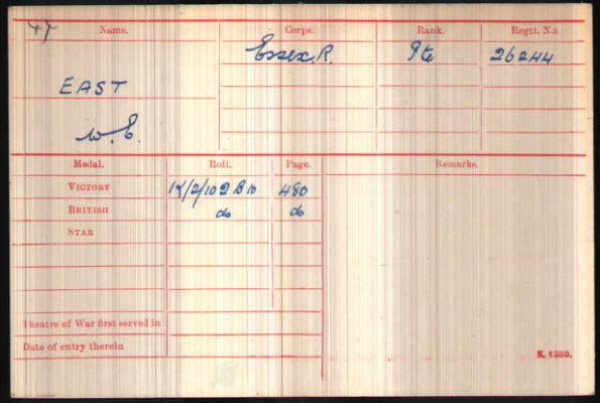 47 Name. Corps. Rank. Regtl. No.
Essex. R. Pte 26244
EAST
W. E.
Medal. Roll. Page. Remarks.
VICTORY K/2/102B10 480
BRITISH do do
STAR
Theatre of War first served in
Date of entry therein
K. 1380.